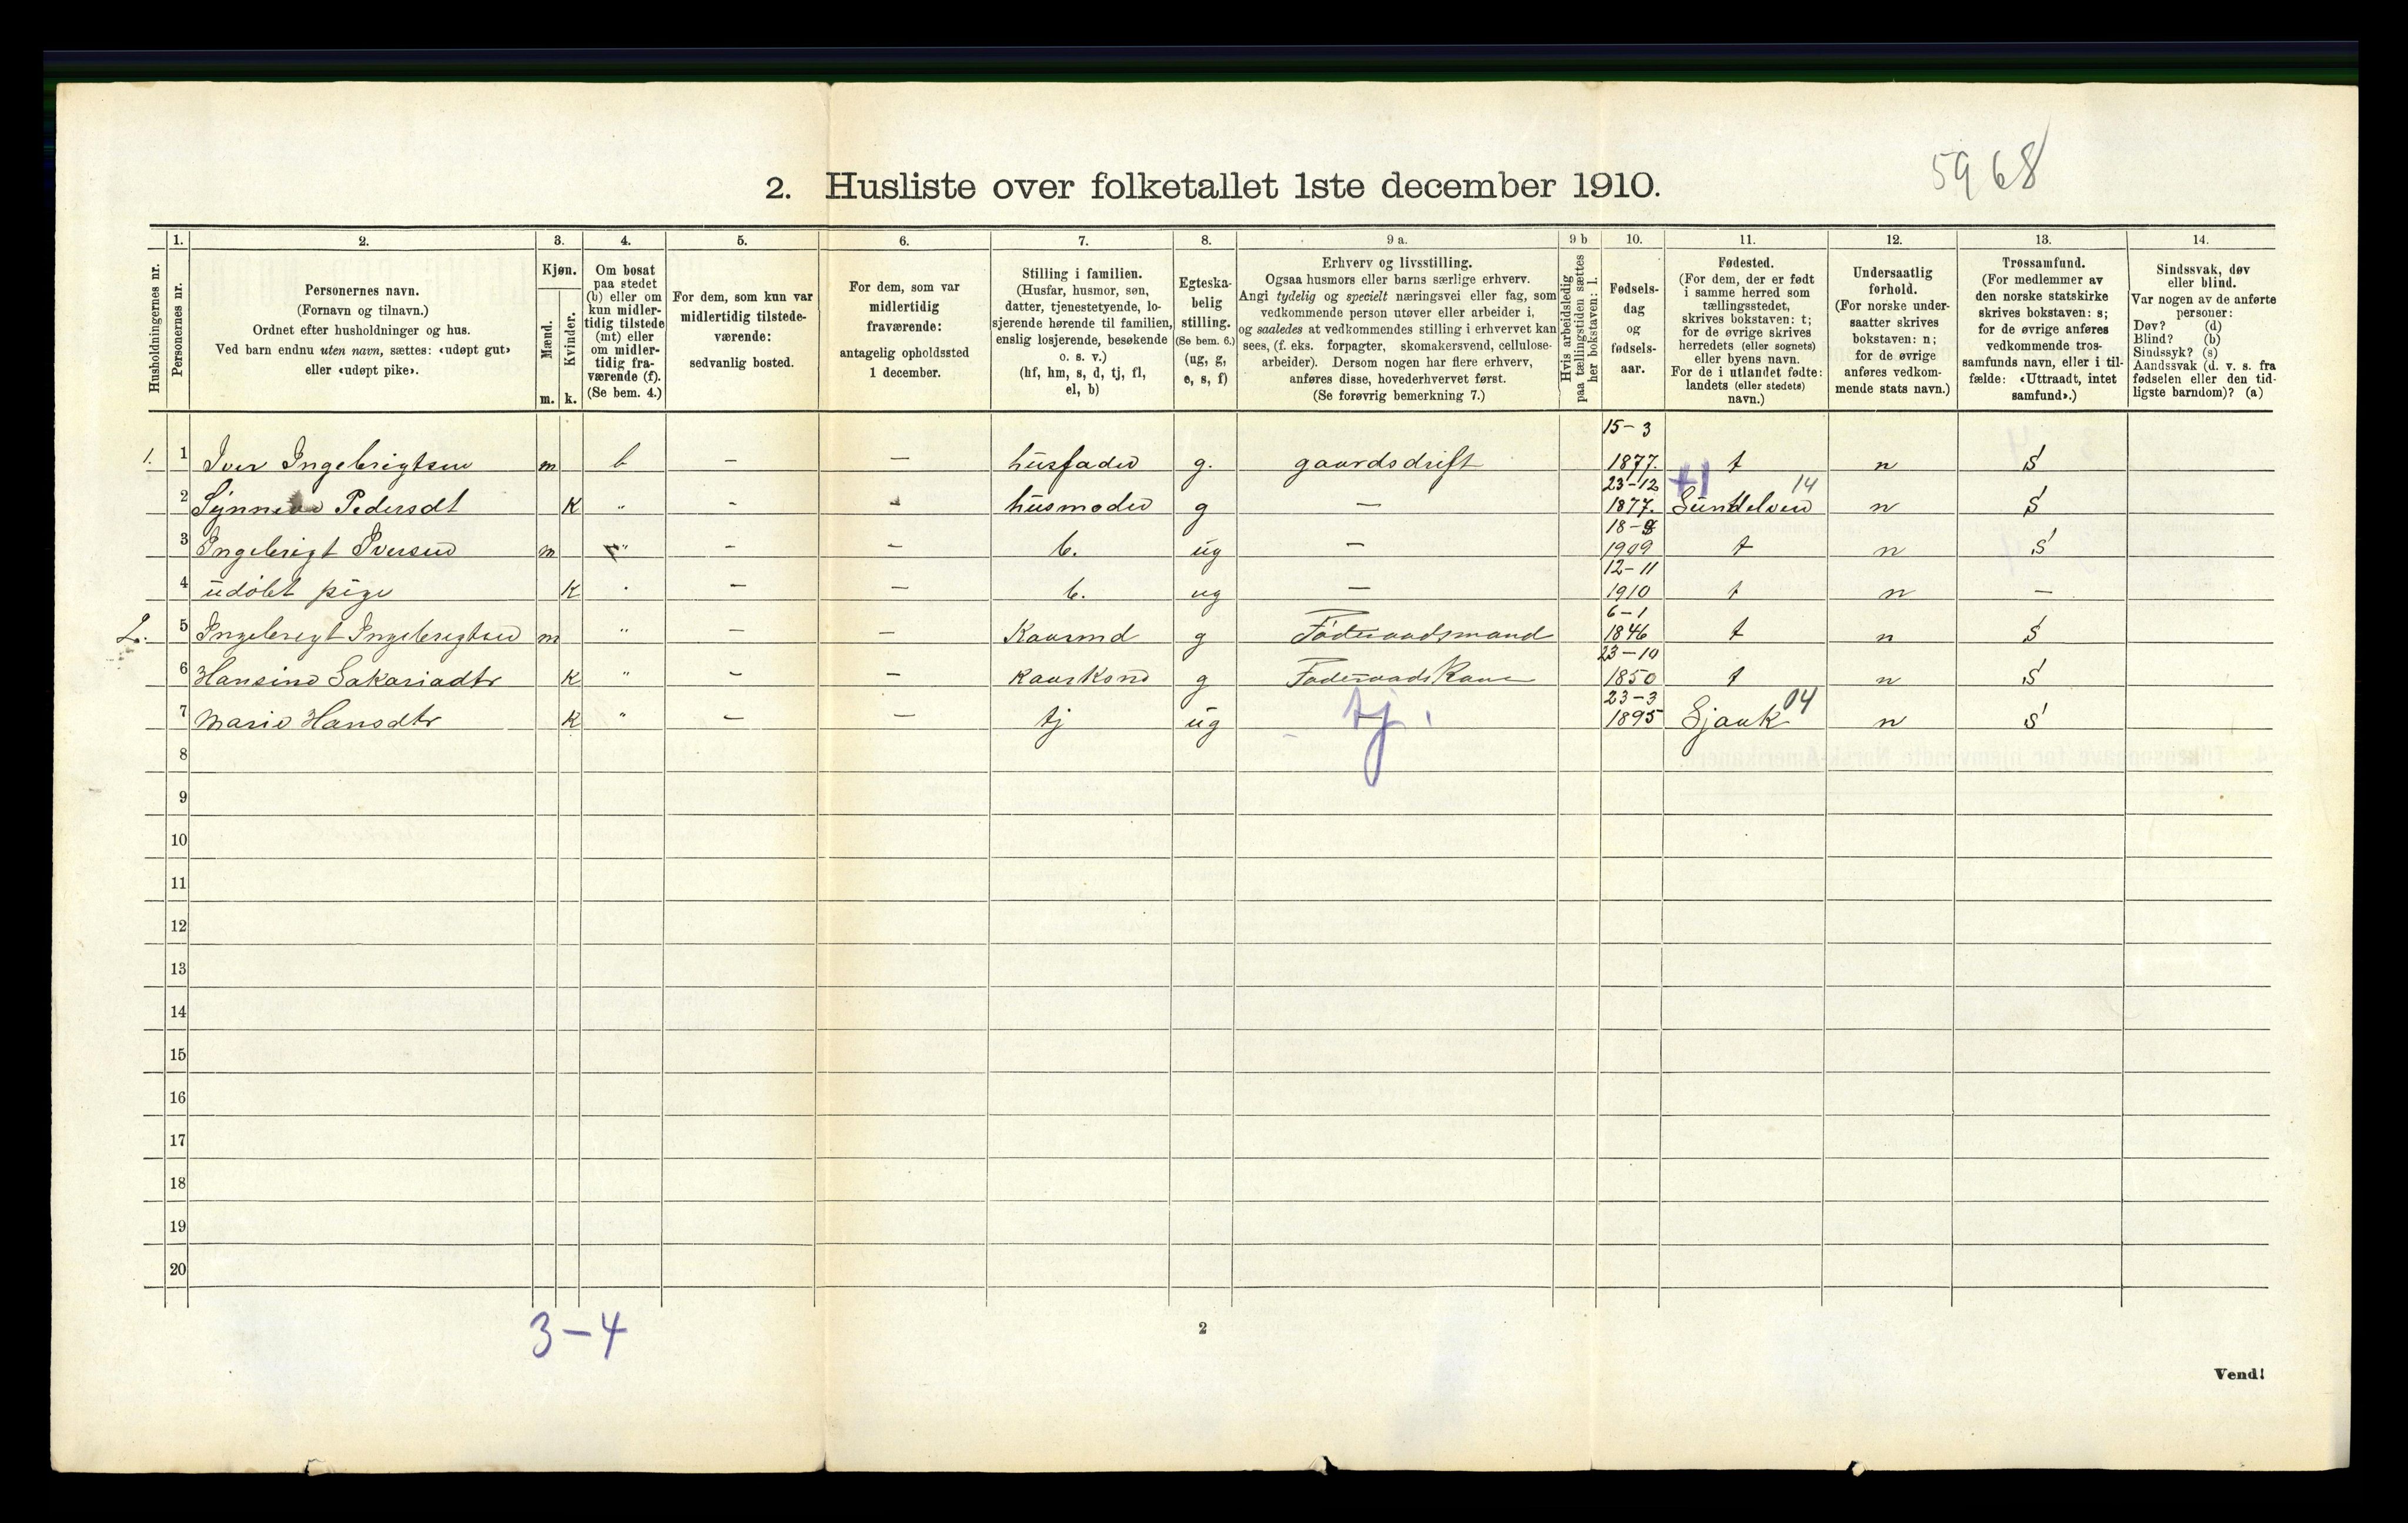 5968
2. Husliste over folketallet 1ste december 1910.
Husholdningernes nr.
1. Personernes nr.
2. Personernes navn.
(Fornavn og tilnavn.)
Ordnet efter husholdninger og hus.
Ved barn endnu uten navn, sættes: «udøpt gut»
eller «udøpt pike».
3. Kjøn.
Mænd. m.
Kvinder. k.
4. Om bosat
paa stedet
(b) eller om
kun midler-
tidig tilstede
(mt) eller
om midler-
tidig fra-
værende (f).
(Se bem. 4.)
5. For dem, som kun var
midlertidig tilstede-
værende:
sedvanlig bosted.
6. For dem, som var
midlertidig
fraværende:
antagelig opholdssted
1 december.
7. Stilling i familien.
(Husfar, husmor, søn,
datter, tjenestetyende, lo-
sjerende hørende til familien,
enslig losjerende, besøkende
o. s. v.)
(hf, hm, s, d, tj, fl,
el, b)
8. Egteska-
belig
stilling.
(Se bem. 6.)
(ug, g,
e, s, f)
9 a. Erhverv og livsstilling.
Ogsaa husmors eller barns særlige erhverv.
Angi tydelig og specielt næringsvei eller fag, som
vedkommende person utøver eller arbeider i,
og saaledes at vedkommendes stilling i erhvervet kan
sees, (f. eks. forpagter, skomakersvend, cellulose-
arbeider). Dersom nogen har flere erhverv,
anføres disse, hovederhvervet først.
(Se forøvrig bemerkning 7.)
9 b Hvis arbeidsledig
paa tællingstiden sættes
her bokstaven: l.
10. Fødsels-
dag
og
fødsels-
aar.
11. Fødested.
(For dem, der er født
i samme herred som
tællingsstedet,
skrives bokstaven: t;
for de øvrige skrives
herredets (eller sognets)
eller byens navn.
For de i utlandet fødte:
landets (eller stedets)
navn.)
12. Undersaatlig
forhold.
(For norske under-
saatter skrives
bokstaven: n;
for de øvrige
anføres vedkom-
mende stats navn.)
13. Trossamfund.
(For medlemmer av
den norske statskirke
skrives bokstaven: s;
for de øvrige anføres
vedkommende tros-
samfunds navn, eller i til-
fælde: «Uttraadt, intet
samfund».)
14. Sindssvak, døv
eller blind.
Var nogen av de anførte
personer:
Døv? (d)
Blind? (b)
Sindssyk? (s)
Aandssvak (d. v. s. fra
fødselen eller den tid-
ligste barndom)? (a)
1. 1 Iver Ingebrigtsen m b — — husfader g. gaardsdrift 15-3 1877. t n S
2 Synneve Pedersdt K " - - husmoder g — 23-12 1877. Sundelven 14 n S
3 Ingebrigt Iversen m " - — b. ug — 18-9 1909 t n S
4 udöbt pige K " - — b. ug — 12-11 1910 t n —
2. 5 Ingebrigt Ingebrigtsen m " — — Kaarmd g Föderaadsmand 6-1 1846 t n S
6 Hansine Sakariadtr K " - — Kaarkone g Föderaads Kone 23-10 1850 t n S
7 Marie Hansdtr K " — — tj ug tj. 23-3 1895 Sjaak 04 n S
8
9
10
11
12
13
14
15
16
17
18
19
20
3-4
2
Vend!